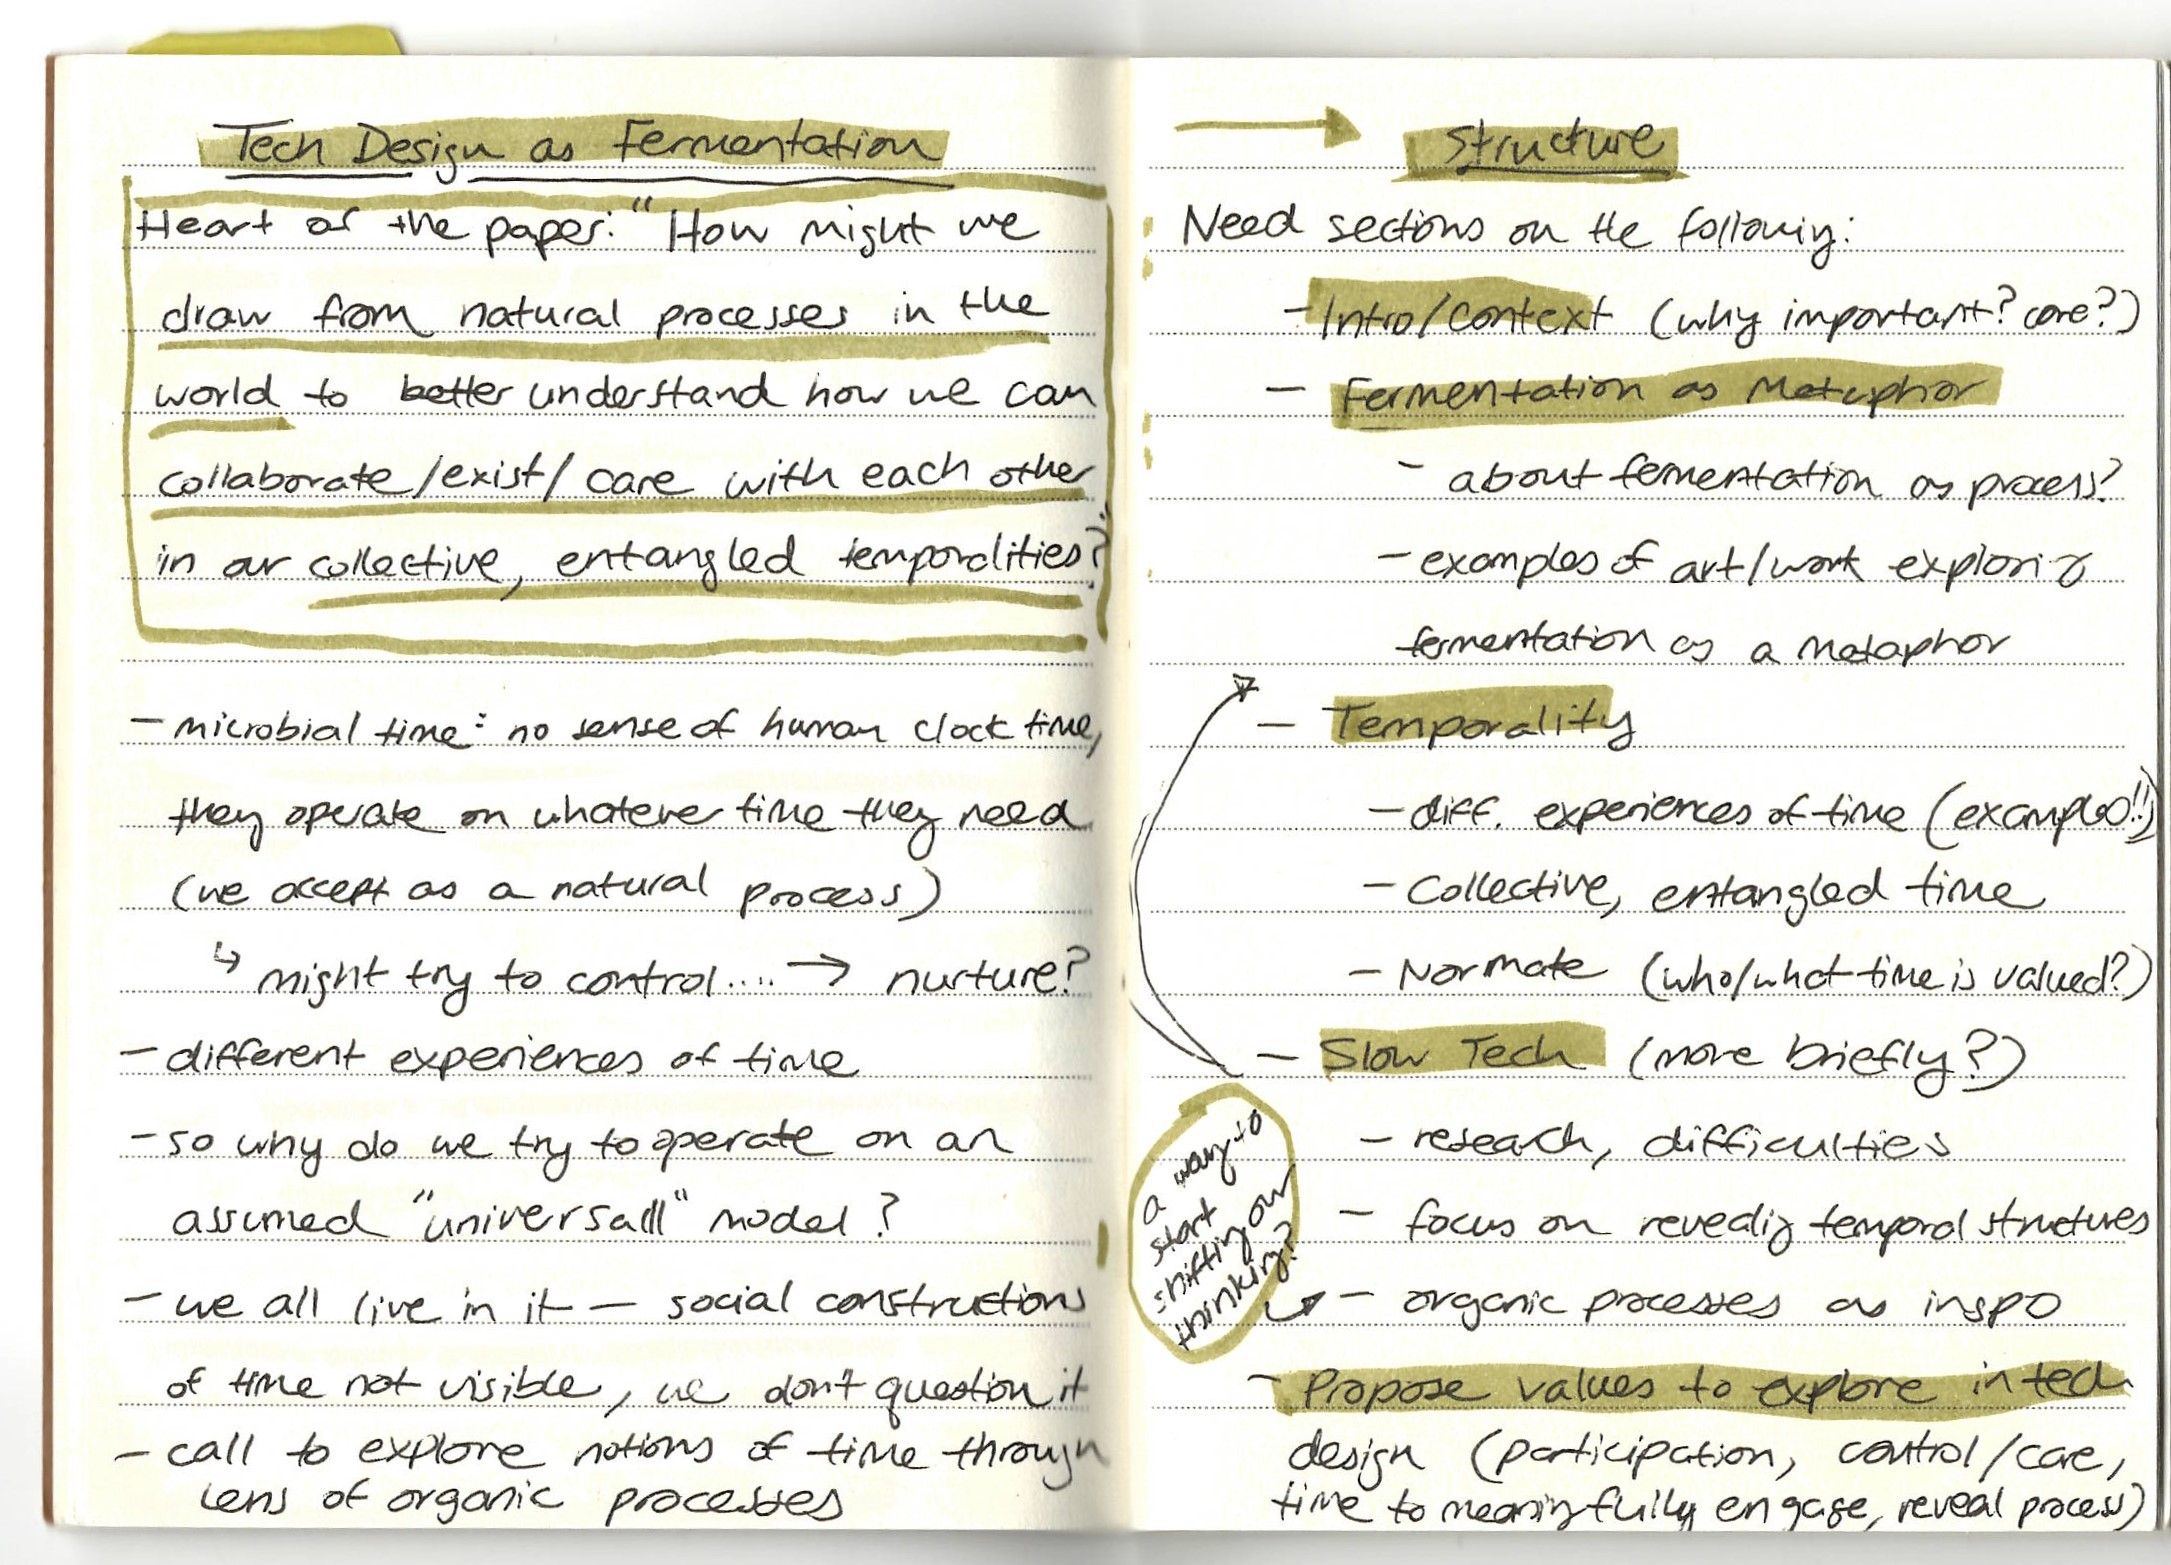 Tech Design as Fermentation
Heart of the paper: "How might we
draw from natural processes in the
world to better understand how we can
collaborate/exist/ care with each other
in our collective, entangled temporalities?"
- microbial time: no sense of human clock time,
they operate on whatever time they need
(we accept as a natural process)
↳ might try to control.... → nurture?
- different experiences of time
- so why do we try to operate on an
assumed "universall" model?
- we all live in it — social constructions
of time not visible, we don't question it
- call to explore notions of time through
lens of organic processes
→ Structure
Need sections on the following:
- Intro/Context (why important? care?)
- Fermentation as Metaphor
- about fermentation as process?
- examples of art/work exploring
fermentation as a metaphor
- Temporality
- diff. experiences of time (examples!!)
- Collective, entangled time
- Normate (who/what time is valued?)
- Slow Tech (more briefly?)
- research, difficulties
- focus on revealing temporal structures
- organic processes as inspo
a way to
start
shifting our
thinking?
- Propose values to explore in tech
design (participation, control/care,
time to meaningfully engage, reveal process)